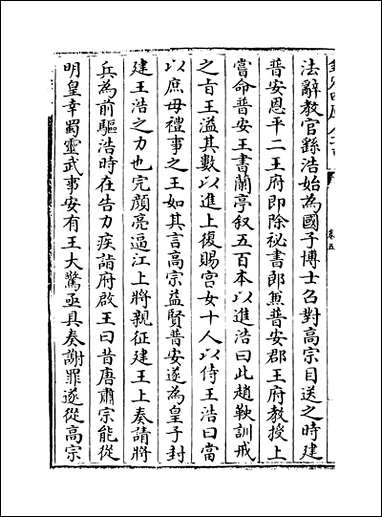 法辭教官繇浩始為國子博士召對高宗目送之時建
普安恩平二王府即除祕書郎兼普安郡王府教授上
嘗命普安王書蘭亭叙五百本以進浩曰此趙鞅訓戒
之旨王溢其數以進上復賜宫女十人以侍王浩曰當
以庶母禮事之王如其言高宗益賢普安遂為皇子封
建王浩之力也完顔亮逼江上將親征建王上奏請將
兵為前驅浩時在告力疾請府啟王曰昔唐肅宗能從
明皇幸蜀靈武事安有王大驚亟具奏謝罪遂從高宗
卷五